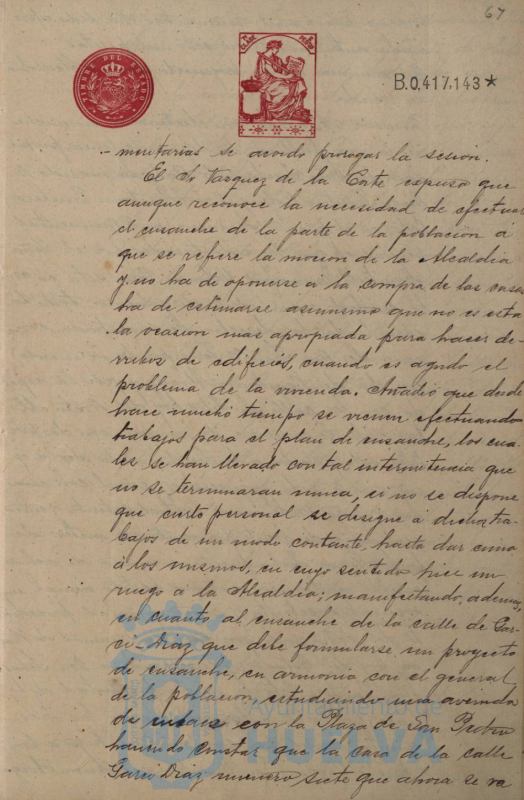 67
TIMBRE DEL ESTADO
CLASE
B.0.417,143*
mentarias se acordó prorogar la sesión.
El Sr Vazquez de la Corte expuso que
aunque reconoce la necesidad de efectuar
el ensanche de la parte de la población á
que se refiere la moción de la Alcaldia
y no ha de oponerse á la compra de las casas
ha de estimarse asimismo que no es esta
la ocasión mas apropiada para hacer de-
rribos de edificios, cuando es agudo el
problema de la vivienda. Añadió que desde
hace mucho tiempo se vienen efectuando
trabajos para el plan de ensanche, los cua-
les se han llevado con tal intermitencia que
no se terminaran nunca, si no se dispone
que cierto personal se designe á dichos tra-
bajos de un modo constante, hasta dar cima
á los mismos, en cuyo sentido hice un
ruego a la Alcaldia; manifestando, ademas,
en cuanto al ensanche de la calle de Gar-
ci-Diaz que debe formularse, un proyecto
de ensanche, en armonia con el general
de la población, estudiando una avenida
de enlace con la Plaza de San Pedro
haciendo constar que la casa de la calle
Garci Diaz numero siete que ahora se va
Ayuntamiento de
HUELVA